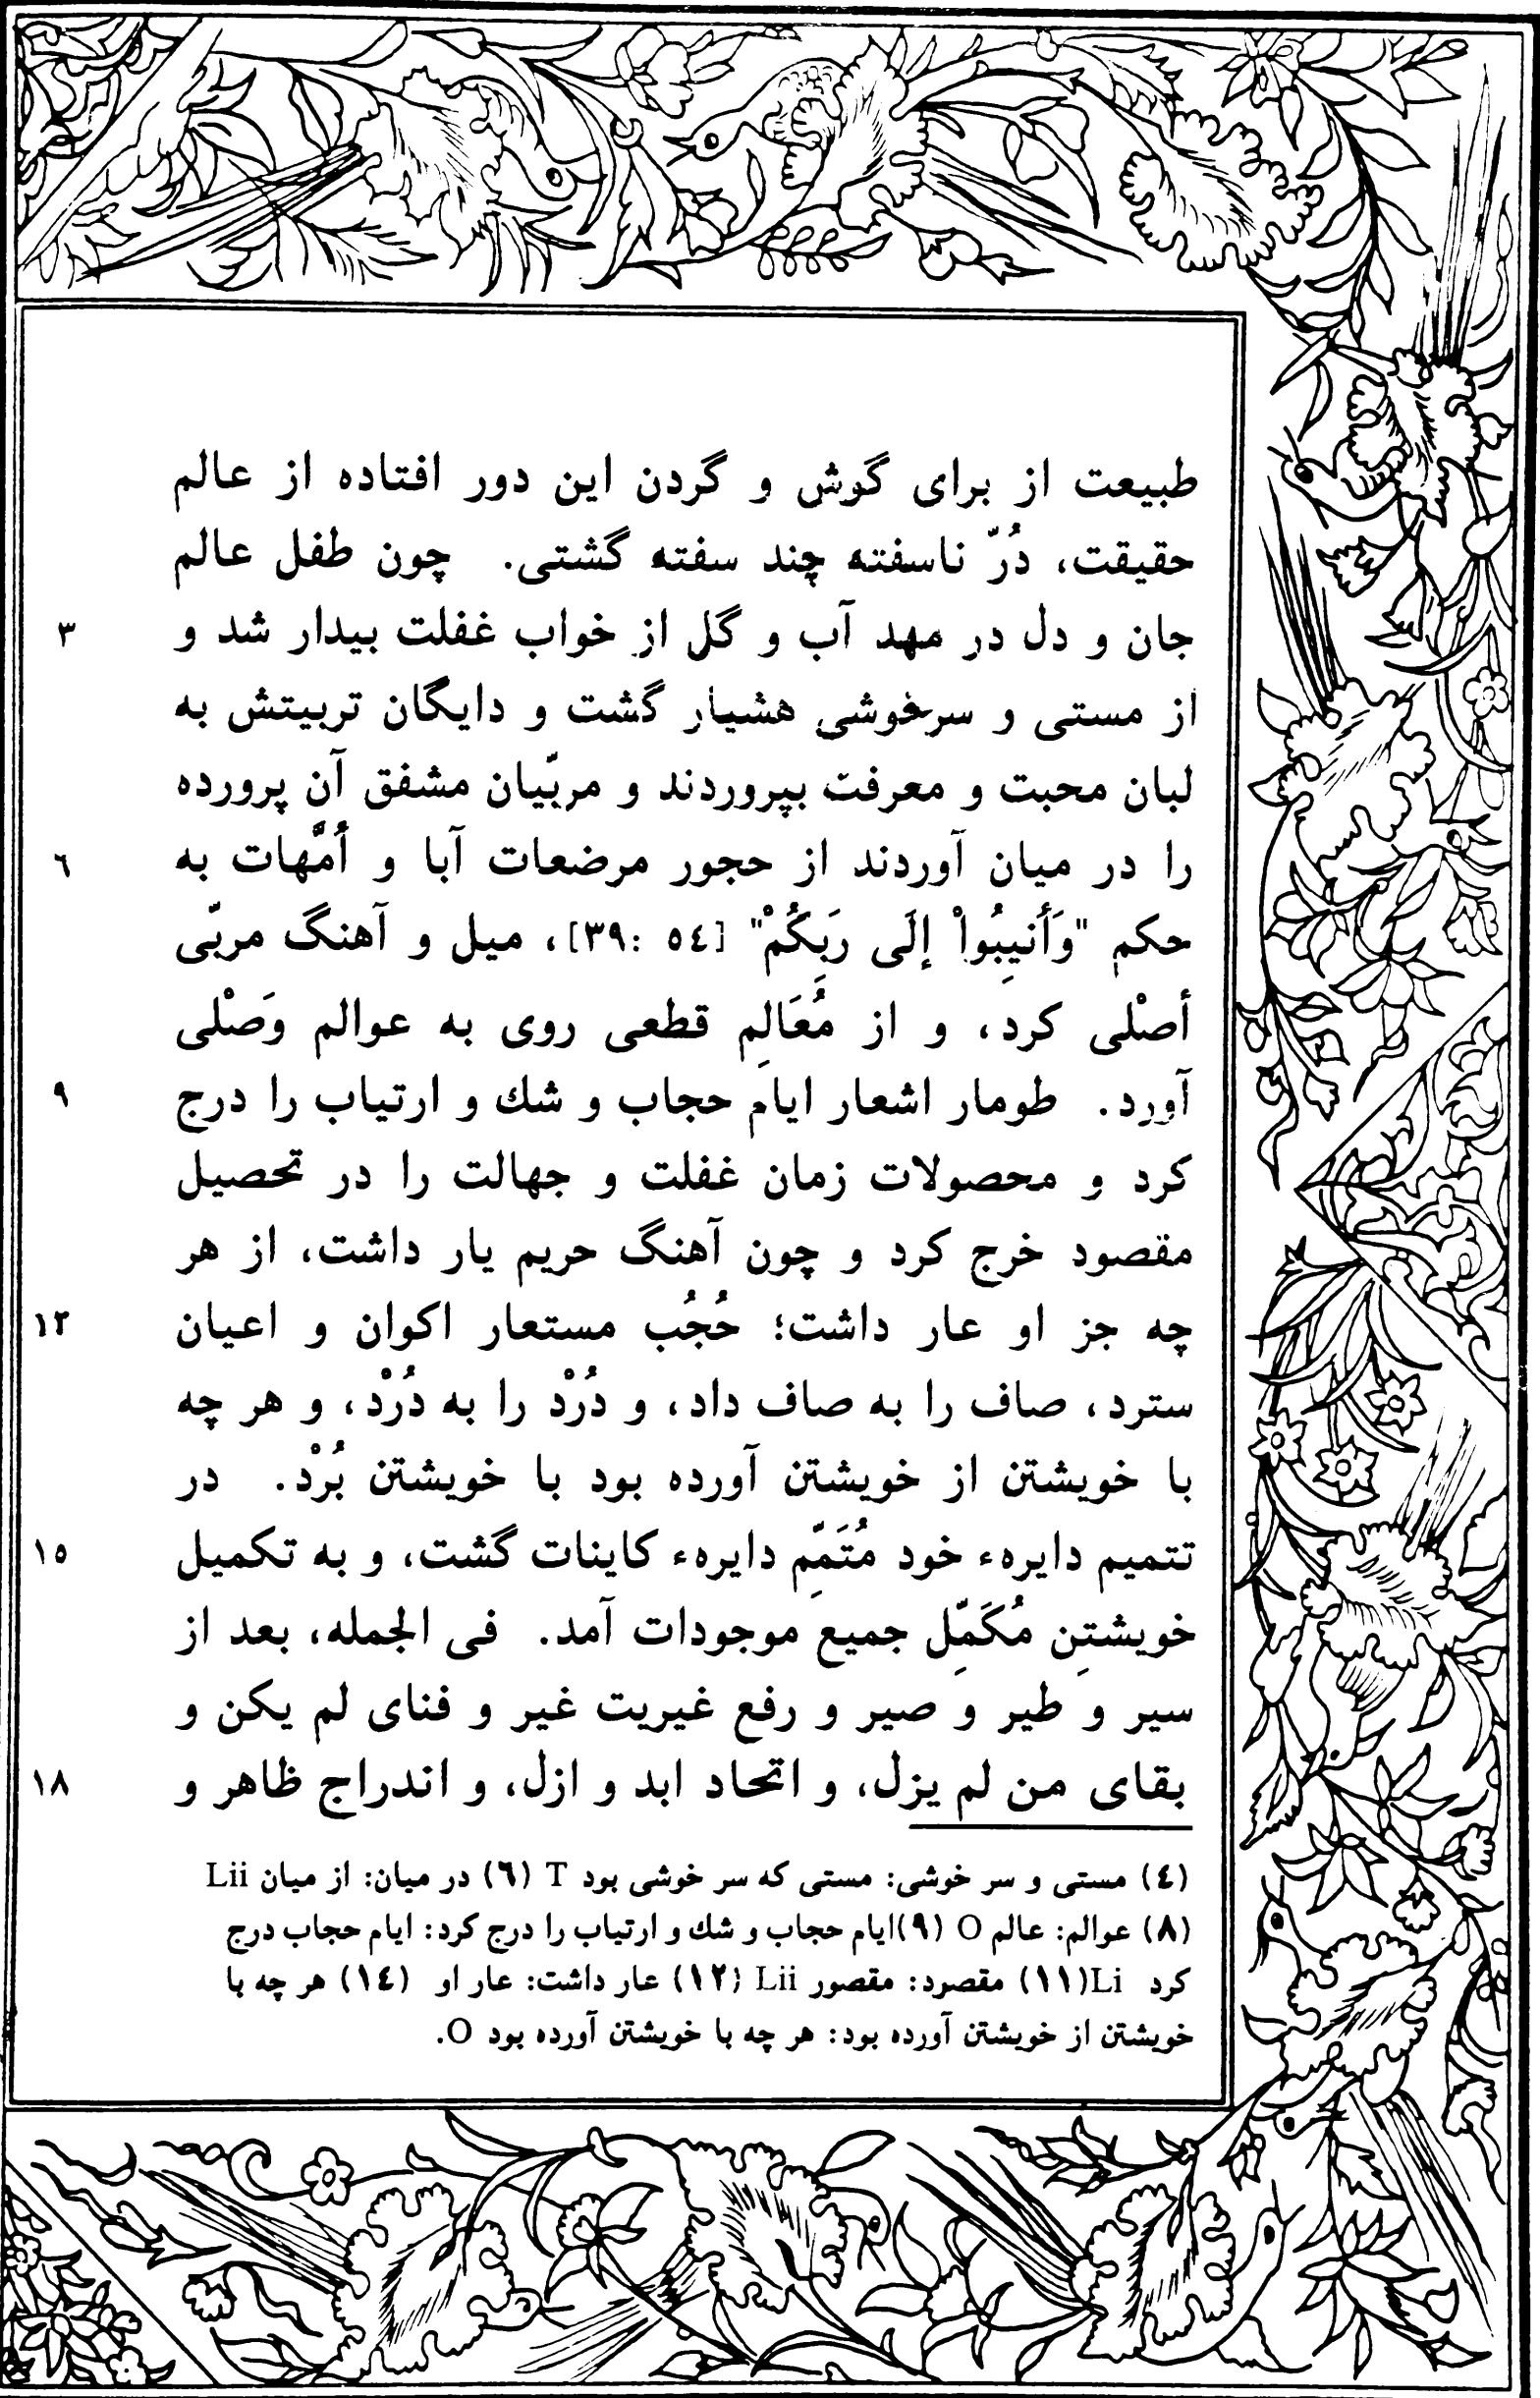 طبیعت از برای گوش و گردن این دور افتاده از عالم
حقیقت، دُرّ ناسفته چند سفته گشتی. چون طفل عالم
جان و دل در مهد آب و گل از خواب غفلت بیدار شد و
۳
از مستی و سرخوشی هشیار گشت و دایگان تربیتش به
لبان محبت و معرفت بپروردند و مربّیان مشفق آن پرورده
را در میان آوردند از حجور مرضعات آبا و أُمَّهات به
٦
حکم "وَأَنیِبُواْ إلَی رَبِکُمْ" [۳۹: ٥٤]، میل و آهنگ مربّی
أصْلی کرد، و از مُعَالِم قطعی روی به عوالم وَصْلی
آورد. طومار اشعار ایام حجاب و شك و ارتیاب را درج
۹
کرد و محصولات زمان غفلت و جهالت را در تحصیل
مقصود خرج کرد و چون آهنگ حریم یار داشت، از هر
چه جز او عار داشت؛ حُجُب مستعار اکوان و اعیان
۱۲
سترد، صاف را به صاف داد، و دُرْد را به دُرْد، و هر چه
با خویشتن از خویشتن آورده بود با خویشتن بُرْد. در
تتمیم دایرهء خود مُتَمِّم دایرهء کاینات گشت، و به تکمیل
۱٥
خویشتِن مُکَمِّل جمیع موجودات آمد. فی الجمله، بعد از
سیر و طیر و صیر و رفع غیریت غیر و فنای لم یکن و
بقای من لم یزل، و اتحاد ابد و ازل، و اندراج ظاهر و
۱۸
(٤) مستی و سر خوشی: مستی که سر خوشی بود T (٦) در میان: از میان Lii
(۸) عوالم: عالم O (۹)ایام حجاب و شك و ارتیاب را درج کرد: ایام حجاب درج
کرد Li(۱۱) مقصرد: مقصور Lii (۱۲) عار داشت: عار او (۱٤) هر چه با
خویشتن از خویشتن آورده بود: هر چه با خویشتن آورده بود O.